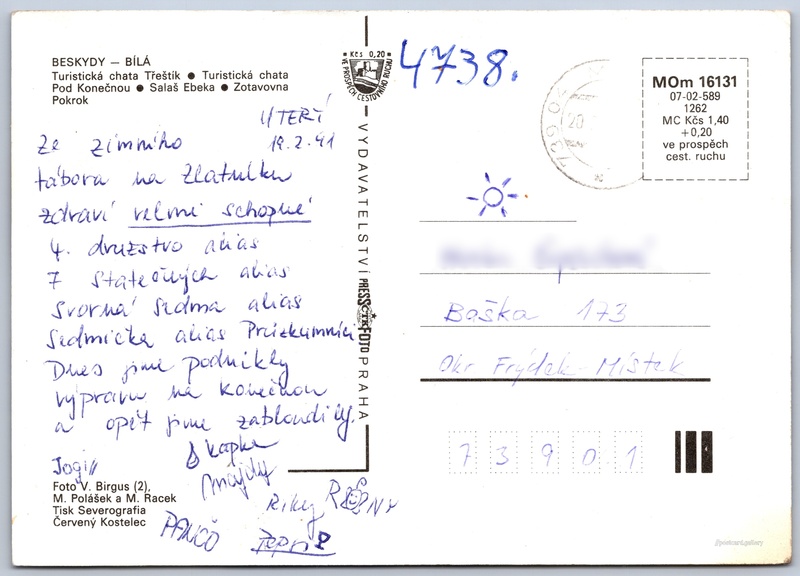 BESKYDY — BÍLÁ
Turistická chata Třeštík ● Turistická chata
Pod Konečnou ● Salaš Ebeka ● Zotavovna
Pokrok
ÚTERÝ
19.2.91
Ze zimního
tábora na Zlatníku
zdraví velmi schopné
4. družstvo alias
7 statečných alias
Svorná sedma alias
Sedmička alias Průzkumníci
Dnes jsme podnikly
výpravu na Konečnou
a opět jsme zabloudily.
Kapka
Jogi
Riky
PANČO
Pepis
Foto V. Birgus (2),
M. Polášek a M. Racek
Tisk Severografia
Červený Kostelec
Kčs 0,20
VE PROSPĚCH CESTOVNÍHO RUCHU
VYDAVATELSTVÍ PRESSFOTO PRAHA
ČTK
4738.
739 0
20
MOm 16131
07-02-589
1262
MC Kčs 1,40
+0,20
ve prospěch
cest. ruchu
Baška 173
Okr Frýdek-Místek
73901